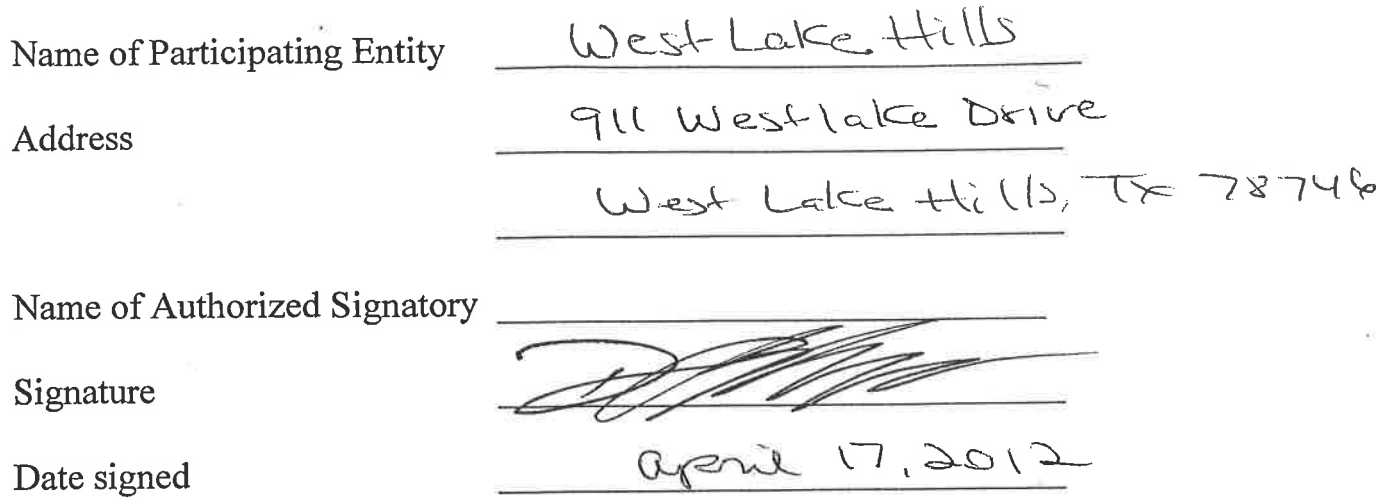 Name of Participating Entity West Lake Hills
Address 911 Westlake Drive
West Lake Hills, Tx 78746
Name of Authorized Signatory
Signature
Date signed April 17, 2012